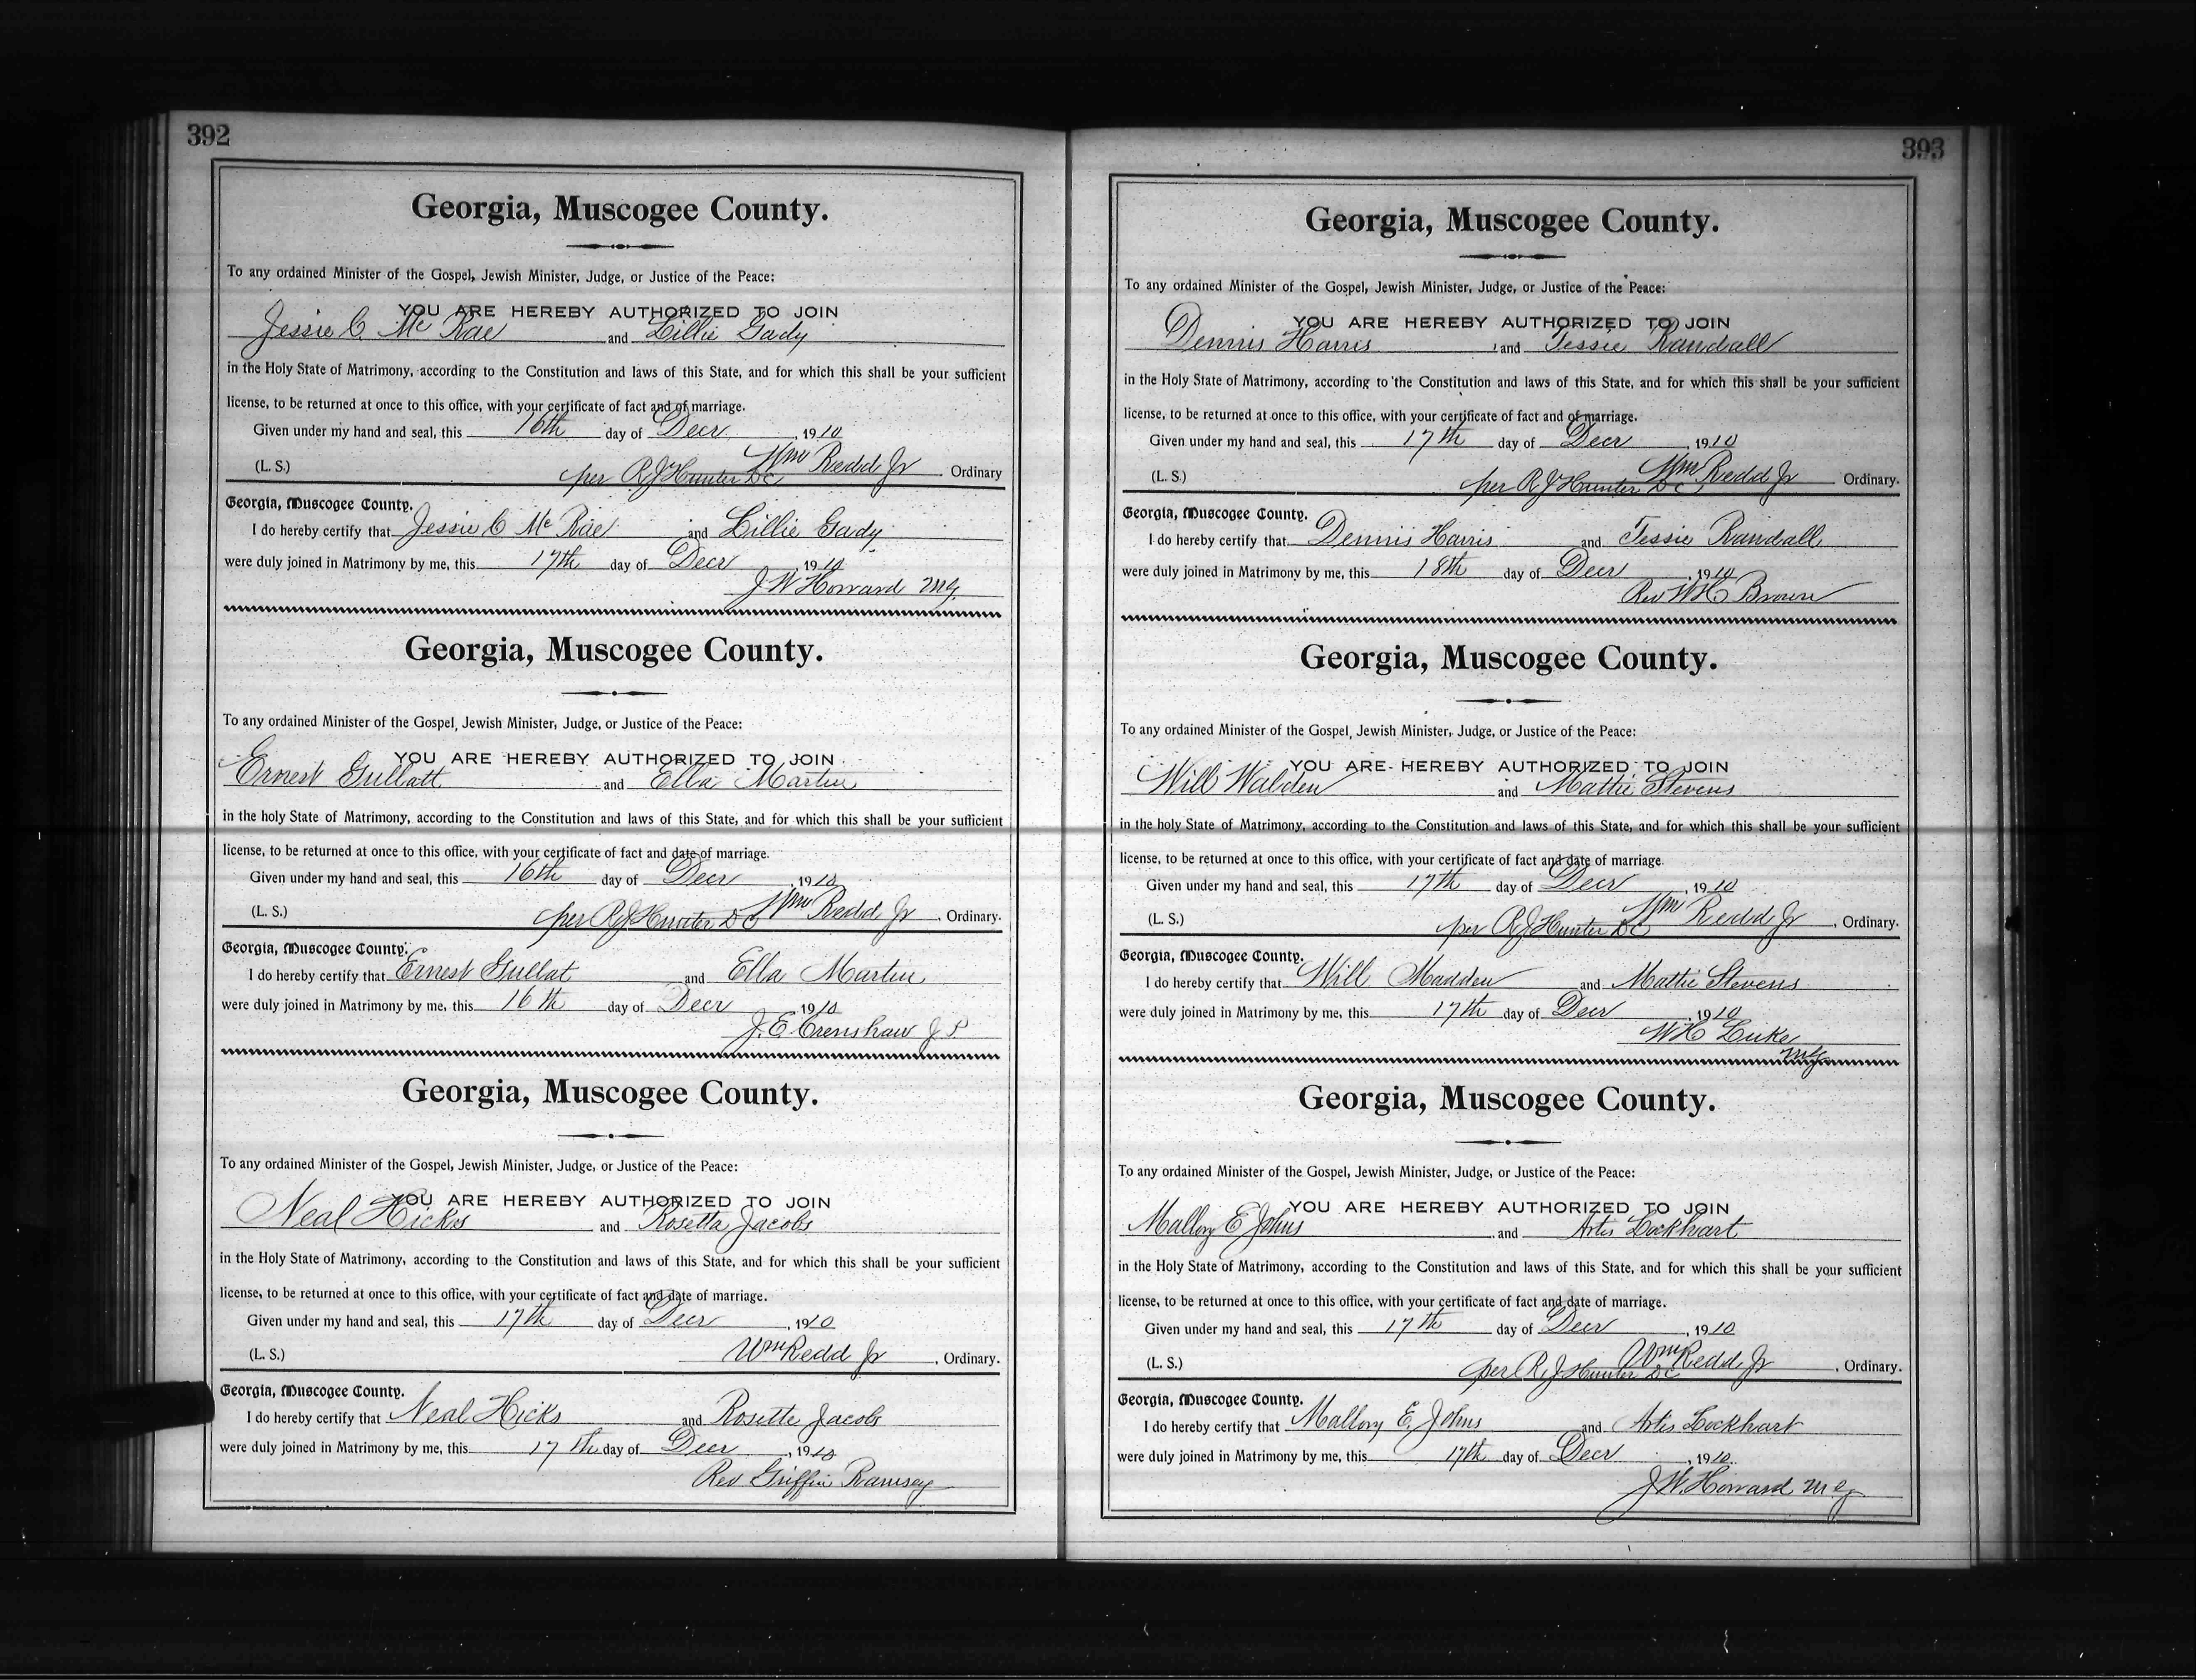 392
Georgia, Muscogee County.
To any ordained Minister of the Gospel, Jewish Minister, Judge, or Justice of the Peace:
YOU ARE HEREBY AUTHORIZED TO JOIN
Jessie C. Mc Rae and Lillie Gady
in the Holy State of Matrimony, according to the Constitution and laws of this State, and for which this shall be your sufficient
license, to be returned at once to this office, with your certificate of fact and of marriage.
Given under my hand and seal, this 16th day of Decr, 1910
(L. S.) Wm Redd Jr Ordinary
per R J Hunter DC
Georgia, Muscogee County.
I do hereby certify that Jessie C Mc Rae and Lillie Gady
were duly joined in Matrimony by me, this 17th day of Decr, 1910
J W Howard Mg.
Georgia, Muscogee County.
To any ordained Minister of the Gospel, Jewish Minister, Judge, or Justice of the Peace:
YOU ARE HEREBY AUTHORIZED TO JOIN
Ernest Gullatt and Ella Martin
in the holy State of Matrimony, according to the Constitution and laws of this State, and for which this shall be your sufficient
license, to be returned at once to this office, with your certificate of fact and date of marriage.
Given under my hand and seal, this 16th day of Decr, 1910
(L. S.) Wm Redd Jr, Ordinary.
per R J Hunter DC
Georgia, Muscogee County.
I do hereby certify that Ernest Gullat and Ella Martin
were duly joined in Matrimony by me, this 16th day of Decr, 1910
J. E. Crenshaw J P.
Georgia, Muscogee County.
To any ordained Minister of the Gospel, Jewish Minister, Judge, or Justice of the Peace:
YOU ARE HEREBY AUTHORIZED TO JOIN
Neal Hicks and Rosetta Jacobs
in the Holy State of Matrimony, according to the Constitution and laws of this State, and for which this shall be your sufficient
license, to be returned at once to this office, with your certificate of fact and date of marriage.
Given under my hand and seal, this 17th day of Decr, 1910
(L. S.) Wm Redd Jr, Ordinary.
Georgia, Muscogee County.
I do hereby certify that Neal Hicks and Rosette Jacobs
were duly joined in Matrimony by me, this 17th day of Decr, 1910
Rev Griffin Ramsey
393
Georgia, Muscogee County.
To any ordained Minister of the Gospel, Jewish Minister, Judge, or Justice of the Peace:
YOU ARE HEREBY AUTHORIZED TO JOIN
Dennis Harris and Tessie Randall
in the Holy State of Matrimony, according to the Constitution and laws of this State, and for which this shall be your sufficient
license, to be returned at once to this office, with your certificate of fact and of marriage.
Given under my hand and seal, this 17th day of Decr, 1910
(L. S.) Wm Redd Jr Ordinary.
per R J Hunter DC
Georgia, Muscogee County.
I do hereby certify that Dennis Harris and Tessie Randall
were duly joined in Matrimony by me, this 18th day of Decr, 1910
Rev W H Brown
Georgia, Muscogee County.
To any ordained Minister of the Gospel, Jewish Minister, Judge, or Justice of the Peace:
YOU ARE HEREBY AUTHORIZED TO JOIN
Will Walden and Mattie Stevens
in the holy State of Matrimony, according to the Constitution and laws of this State, and for which this shall be your sufficient
license, to be returned at once to this office, with your certificate of fact and date of marriage.
Given under my hand and seal, this 17th day of Decr, 1910
(L. S.) Wm Redd Jr, Ordinary.
per R J Hunter DC
Georgia, Muscogee County.
I do hereby certify that Will Madden and Mattie Stevens
were duly joined in Matrimony by me, this 17th day of Decr, 1910
W H Luke
Mg
Georgia, Muscogee County.
To any ordained Minister of the Gospel, Jewish Minister, Judge, or Justice of the Peace:
YOU ARE HEREBY AUTHORIZED TO JOIN
Mallory E Johns and Artis Lockhart
in the Holy State of Matrimony, according to the Constitution and laws of this State, and for which this shall be your sufficient
license, to be returned at once to this office, with your certificate of fact and date of marriage.
Given under my hand and seal, this 17th day of Decr, 1910
(L. S.) Wm Redd Jr, Ordinary.
per R J Hunter DC
Georgia, Muscogee County.
I do hereby certify that Mallory E. Johns and Artis Lockhart
were duly joined in Matrimony by me, this 17th day of Decr, 1910.
J W. Howard M G